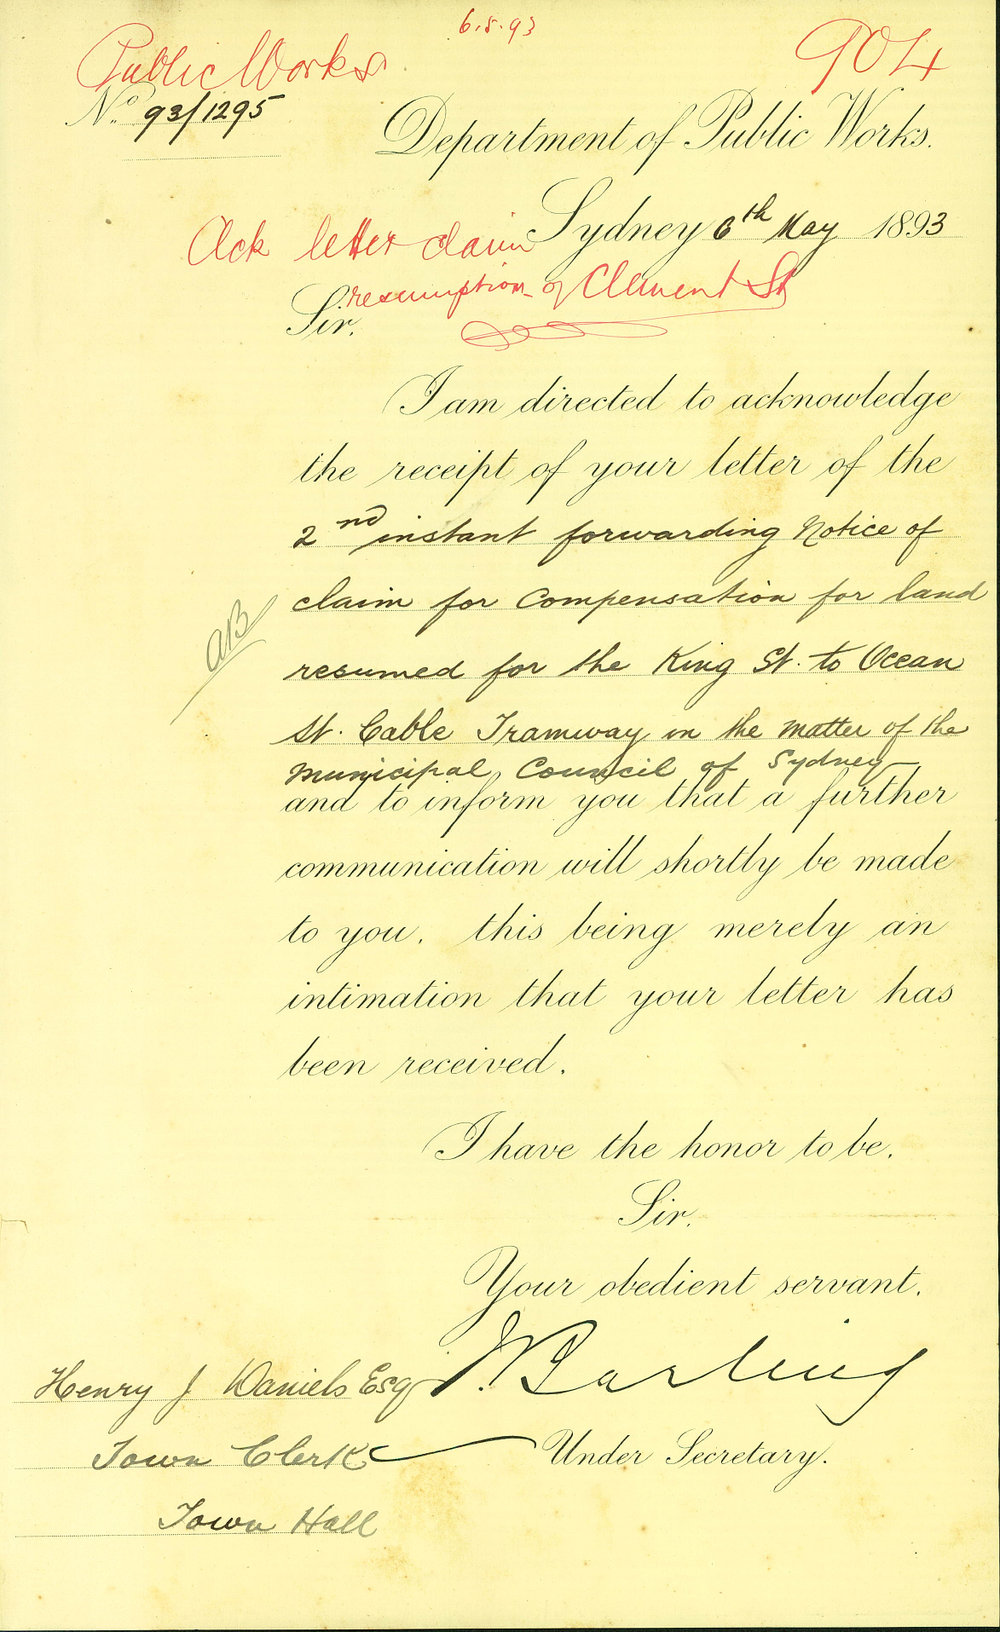 6.5.93
904
Public Works
No. 93/1295
Department of Public Works.
Sydney 6th May 1893
Ack letter claim
resumption of Clement St
Sir,
I am directed to acknowledge
the receipt of your letter of the
2nd instant forwarding Notice of
claim for Compensation for land
resumed for the King St. to Ocean
St. Cable Tramway in the matter of the
Municipal Council of Sydney
and to inform you that a further
communication will shortly be made
to you, this being merely an
intimation that your letter has
been received.
AB
I have the honor to be,
Sir,
Your obedient servant,
J. Barling
Under Secretary.
Henry J Daniels Esq
Town Clerk
Town Hall